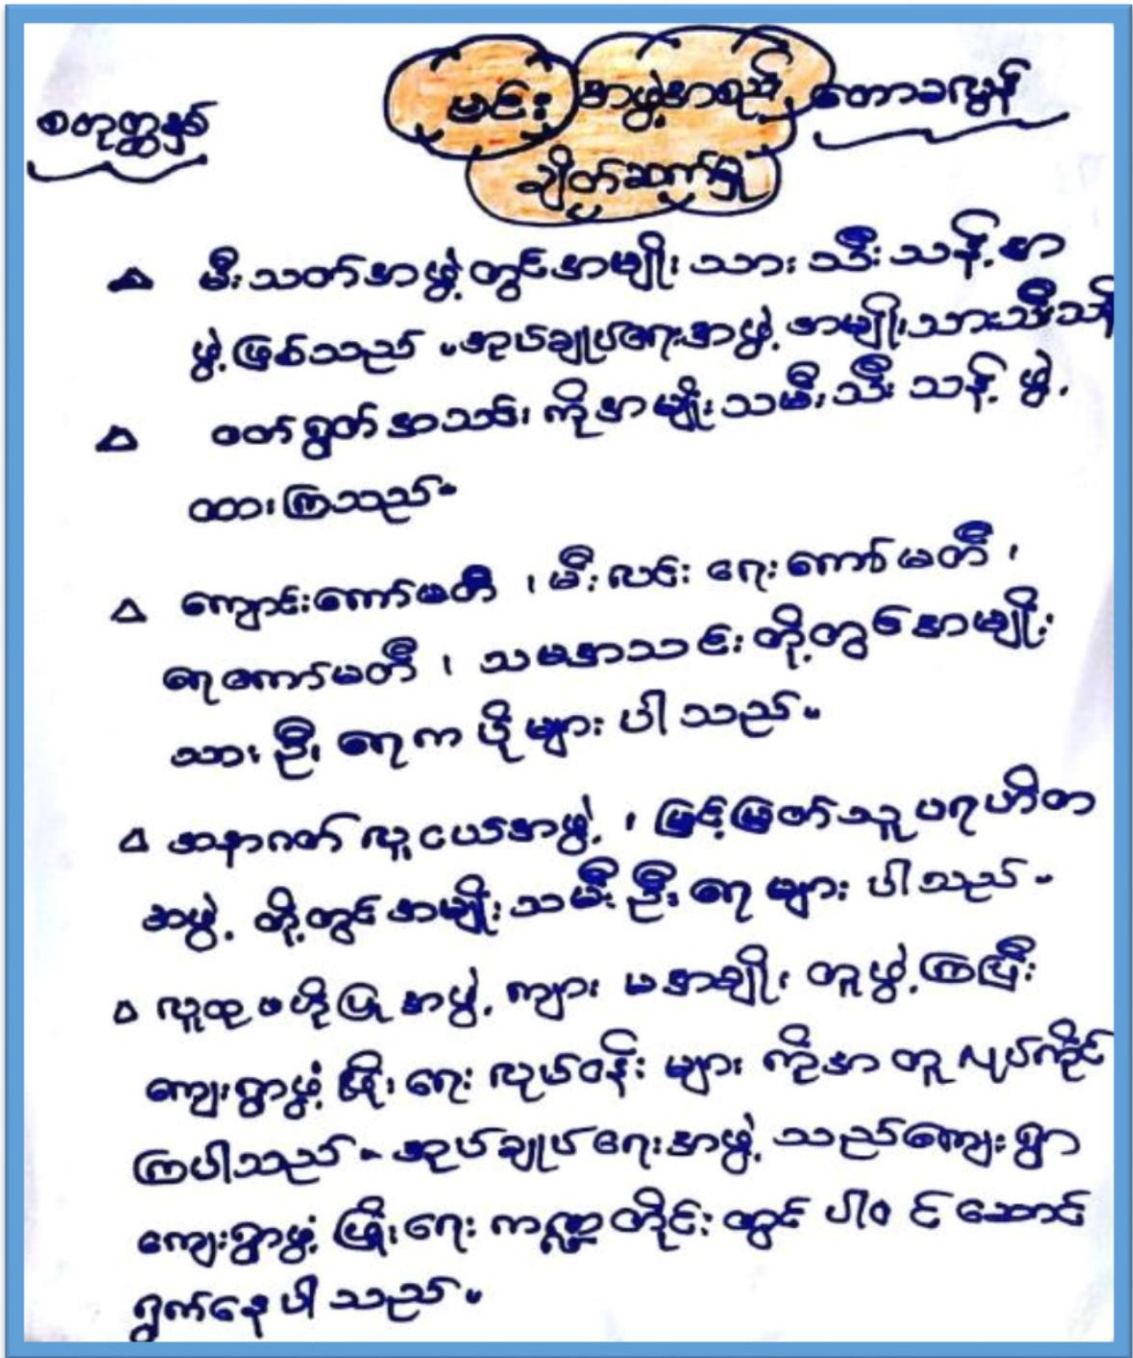 စတုတ္ထနှစ်
မင်း အဖွဲ့အစည်း တောခလွန်
ချိတ်ဆက်မှု
မီးသတ်အဖွဲ့တွင်အမျိုးသားသီးသန့်အ
ဖွဲ့ဖြစ်သည်။အုပ်ချုပ်ရေးအဖွဲ့အမျိုးသားသီးသန့်
ဝတ်ရွတ်အသင်းကိုအမျိုးသမီးသီးသန့်ဖွဲ့
ထားကြသည်။
ကျောင်းကော်မတီ၊မီးလင်းရေးကော်မတီ၊
ရေကော်မတီ၊သမအသင်းတို့တွင်အမျိုး
သားဦးရေကပိုများပါသည်။
အနာဂတ်လူငယ်အဖွဲ့၊မြင့်မြတ်သူပရဟိတ
အဖွဲ့တို့တွင်အမျိုးသမီးဦးရေများပါသည်။
လူထုဗဟိုပြုအဖွဲ့ကျားမအချိုးတူဖွဲ့ကြပြီး
ကျေးရွာဖွံ့ဖြိုးရေးလုပ်ငန်းများကိုအတူလုပ်ကိုင်
ကြပါသည်။အုပ်ချုပ်ရေးအဖွဲ့သည်ကျေးရွာ
ကျေးရွာဖွံ့ဖြိုးရေးကဏ္ဍတိုင်းတွင်ပါဝင်ဆောင်
ရွက်နေပါသည်။